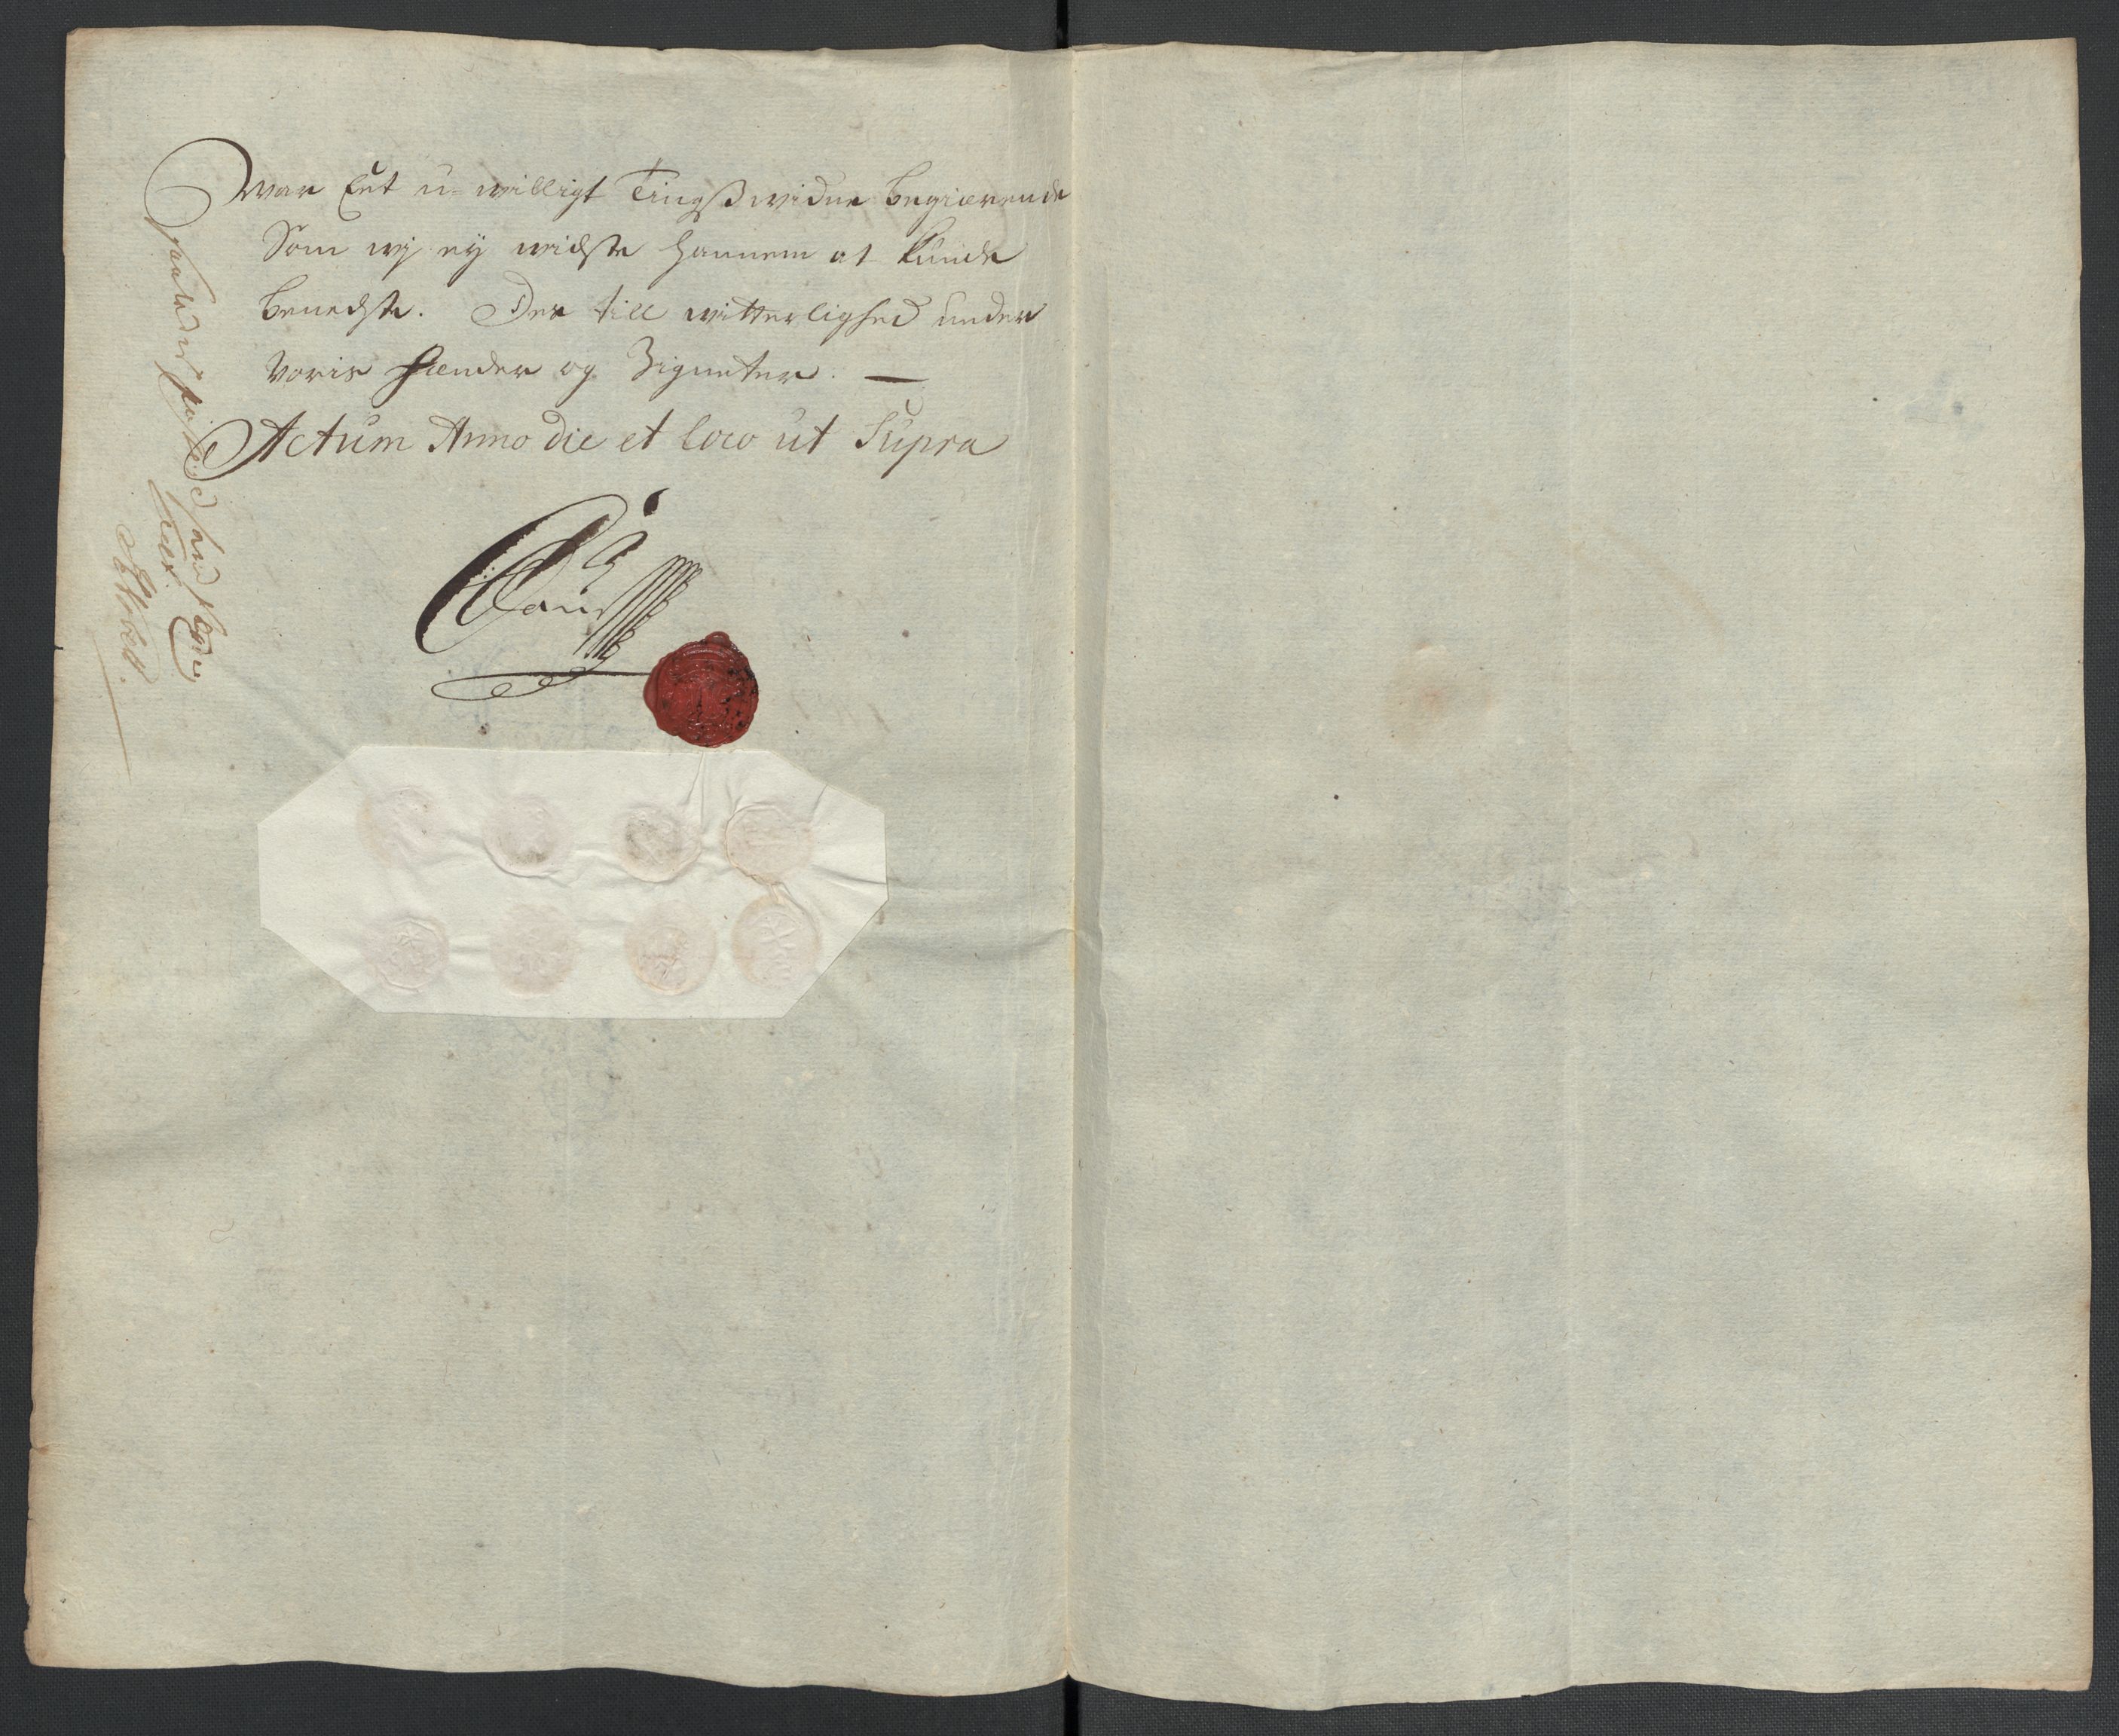 War Eet u-willigt Tingßwidne begiærende
Som wj ey widste hannem at kunde
benegte. Des till witterlighed under
voris hænder og Zigneter. —
Actum Anno die et loco ut Supra